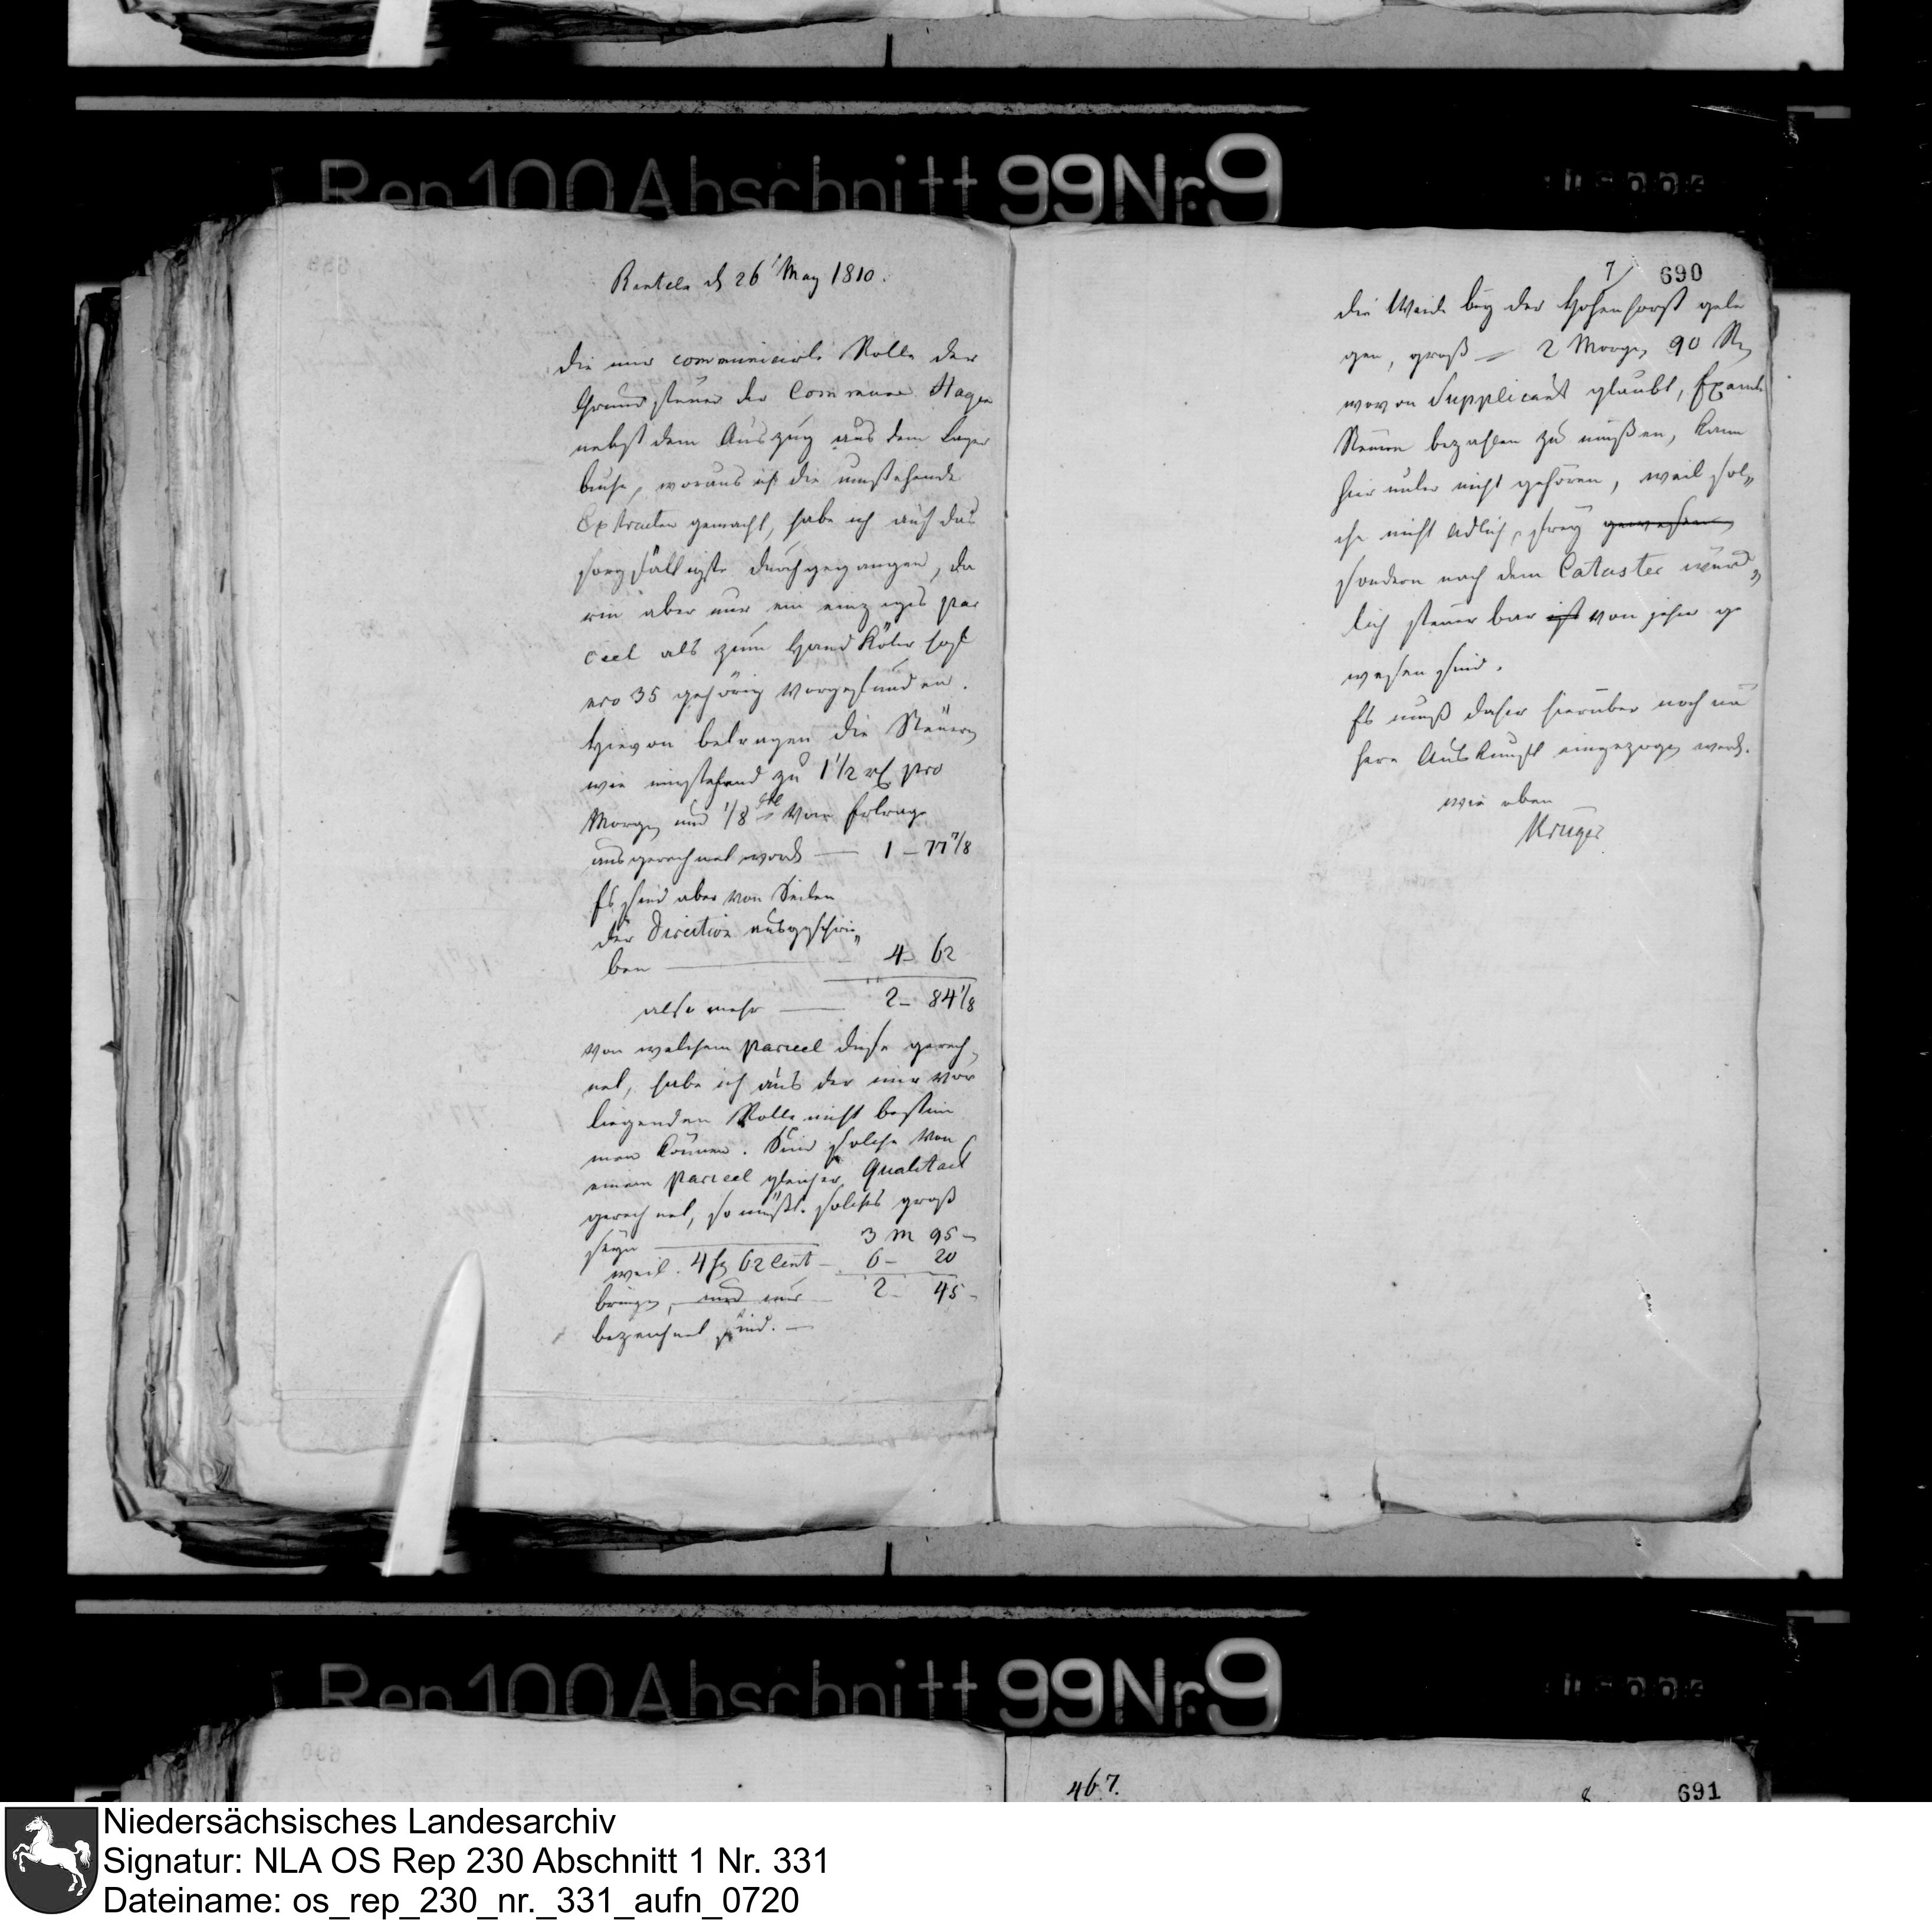 Rep 100 Abschnitt 99 Nr. 9
Rinteln d 26' May 1810.
die mir communicirte Rolle der
Grundsteuer der Commune Hagen
nebst dem Auszug aus dem Lager
buche, woraus ich die umstehende
Extracten gemacht, habe ich auf das
sorgfältigste durchgegangen, da
rin aber nur ein einziges par
ceel als zum Hand Köter
nro 35 gehörig Vorgefunden.
Hievon betragen die Steuern
wie umstehend zu 1 1/2 pro
Morgen und 1/8 Vom Ertrage
ausgerechnet word 1 – 77 7/8
Es sind aber von Seiten
der Direction ausgeschrie„
ben 4 – 62
also mehr 2 – 84 1/8
Von welchem parceel diese gerech„
net, habe ich aus der mir Vor
liegenden Rolle nicht bestim
men können. Sind solche Von
einem parceel gleicher Qualitaet
gerechnet, so müßte solches groß
seyn 3 M 95 –
weil 4 fr 62 Cent – 6 – 20
bringen, und nur 2 – 45 –
bezeichnet sind. —
7 690
die Weide bey der Hohenhorst gele
gen, groß — 2 Morgen 90 R
wovon Supplicant glaubt,
Steuern bezahlen zu müßen, kann
hierunter nicht gehören, weil sol„
che nicht adlich frey gewesen
sondern nach dem Cataster
lich steuerbar ist von jeher ge
wesen sind.
Es muß daher hierüber noch nä
here Auskunft eingezogen werd.
wie oben
Krüger
Rep 100 Abschnitt 99 Nr. 9
690
467. 8 691
Niedersächsisches Landesarchiv
Signatur: NLA OS Rep 230 Abschnitt 1 Nr. 331
Dateiname: os_rep_230_nr._331_aufn_0720